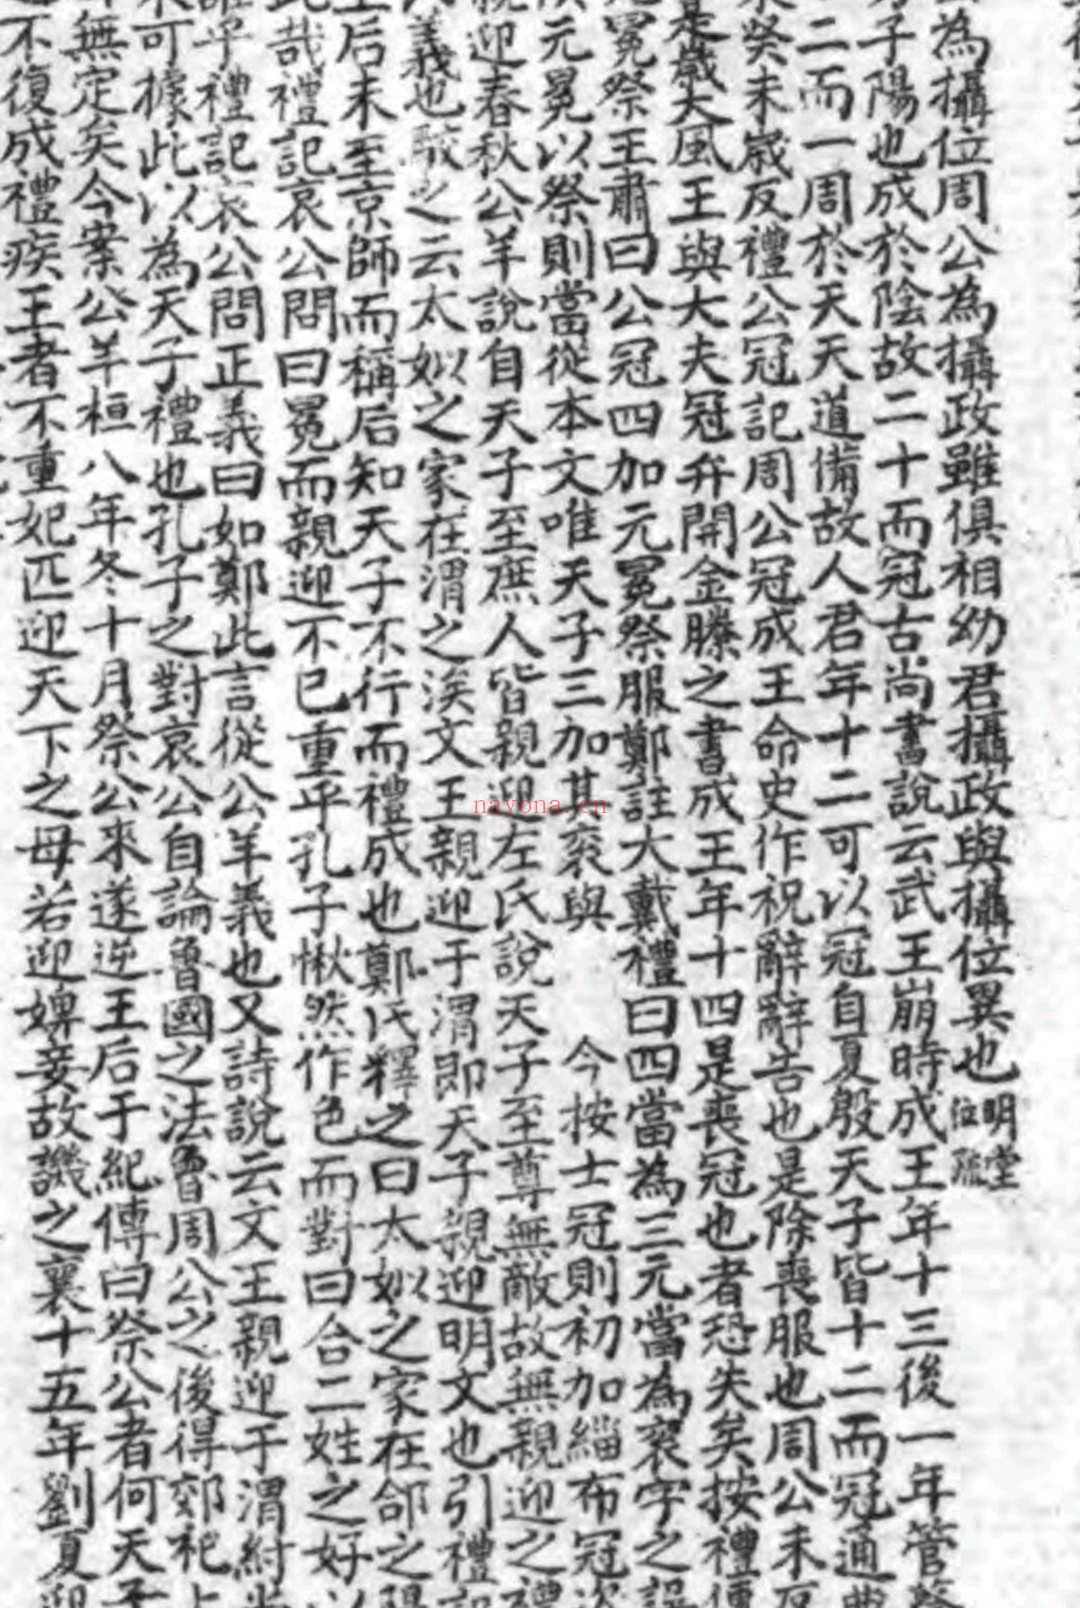 為攝位周公為攝政雖俱相幼君攝政與攝位異也明堂位疏
子陽也成於陰故二十而冠古尚書說云武王崩時成王年十三後一年管蔡
二而一周於天天道備故人君年十二可以冠自夏殷天子皆十二而冠通典
癸未歲反禮公冠記周公冠成王命史作祝辭辭告也是除喪服也周公未反
歲大風王與大夫冠弁開金縢之書成王年十四是喪冠也者恐失矣按禮傳
冕祭王肅曰公冠四加元冕祭服鄭註大戴禮曰四當為三元當為袞字之誤
元冕以祭則當從本文唯天子三加其袞與 今按士冠則初加緇布冠次
迎春秋公羊說自天子至庶人皆親迎左氏說天子至尊無敵故無親迎之禮
義也駁之云太姒之家在渭之涘文王親迎于渭即天子親迎明文也引禮記
后未至京師而稱后知天子不行而禮成也鄭氏釋之曰太姒之家在郃之陽
哉禮記哀公問曰冕而親迎不已重乎孔子愀然作色而對曰合二姓之好以
乎禮記哀公問正義曰如鄭此言從公羊義也又詩說云文王親迎于渭紂尚
可據此以為天子禮也孔子之對哀公自論魯國之法魯周公之後得郊祀上
無定矣今案公羊桓八年冬十月祭公來遂逆王后于紀傳曰祭公者何天子
不復成禮疾王者不重妃匹迎天下之母若迎婢妾故譏之襄十五年劉夏迎
nayona.cn